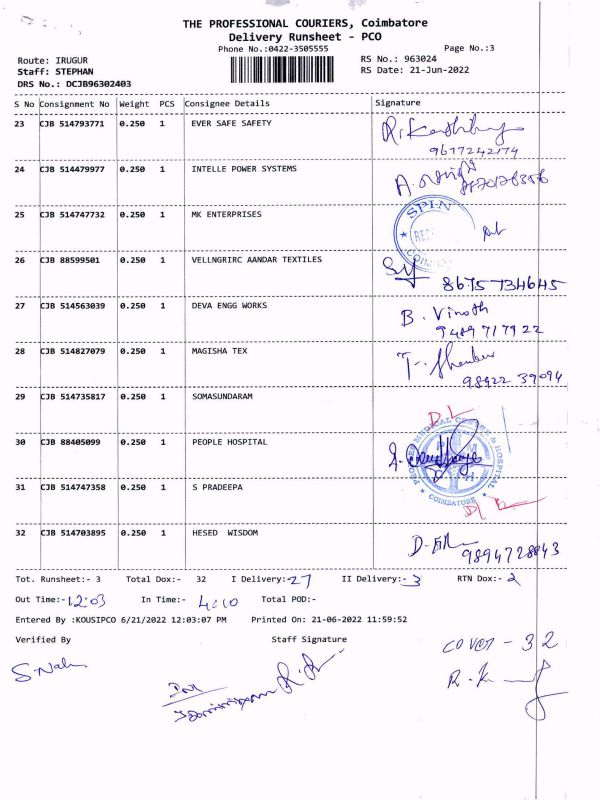 THE PROFESSIONAL COURIERS, Coimbatore
Delivery Runsheet - PCO
Phone No.:0422-3505555 Page No.:3
Route: IRUGUR RS No.: 963024
Staff: STEPHAN RS Date: 21-Jun-2022
DRS No.: DCJB96302403
S No Consignment No Weight PCS Consignee Details Signature
23 CJB 514793771 0.250 1 EVER SAFE SAFETY
9677242174
24 CJB 514479977 0.250 1 INTELLE POWER SYSTEMS
25 CJB 514747732 0.250 1 MK ENTERPRISES
SPIN
26 CJB 88599501 0.250 1 VELLNGRIRC AANDAR TEXTILES
8675734645
27 CJB 514563039 0.250 1 DEVA ENGG WORKS B. Vinoth
9489717922
28 CJB 514827079 0.250 1 MAGISHA TEX
98422 39094
29 CJB 514735817 0.250 1 SOMASUNDARAM
D L
30 CJB 88405099 0.250 1 PEOPLE HOSPITAL
MEDICAL CENTRE & HOSPITAL
COIMBATORE
31 CJB 514747358 0.250 1 S PRADEEPA
32 CJB 514703895 0.250 1 HESED WISDOM
9894728843
Tot. Runsheet:- 3 Total Dox:- 32 I Delivery:- 27 II Delivery:- 3 RTN Dox:- 2
Out Time:- 12:03 In Time:- 4:10 Total POD:-
Entered By :KOUSIPCO 6/21/2022 12:03:07 PM Printed On: 21-06-2022 11:59:52
Verified By Staff Signature
COVER - 32